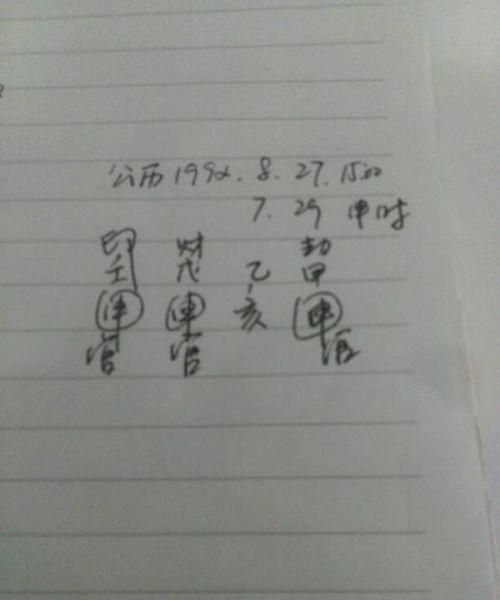 公历1992.8.27.15:00
7.29 申时
印 财 劫
壬 戊 乙 甲
申 申 亥 申
官 官 官